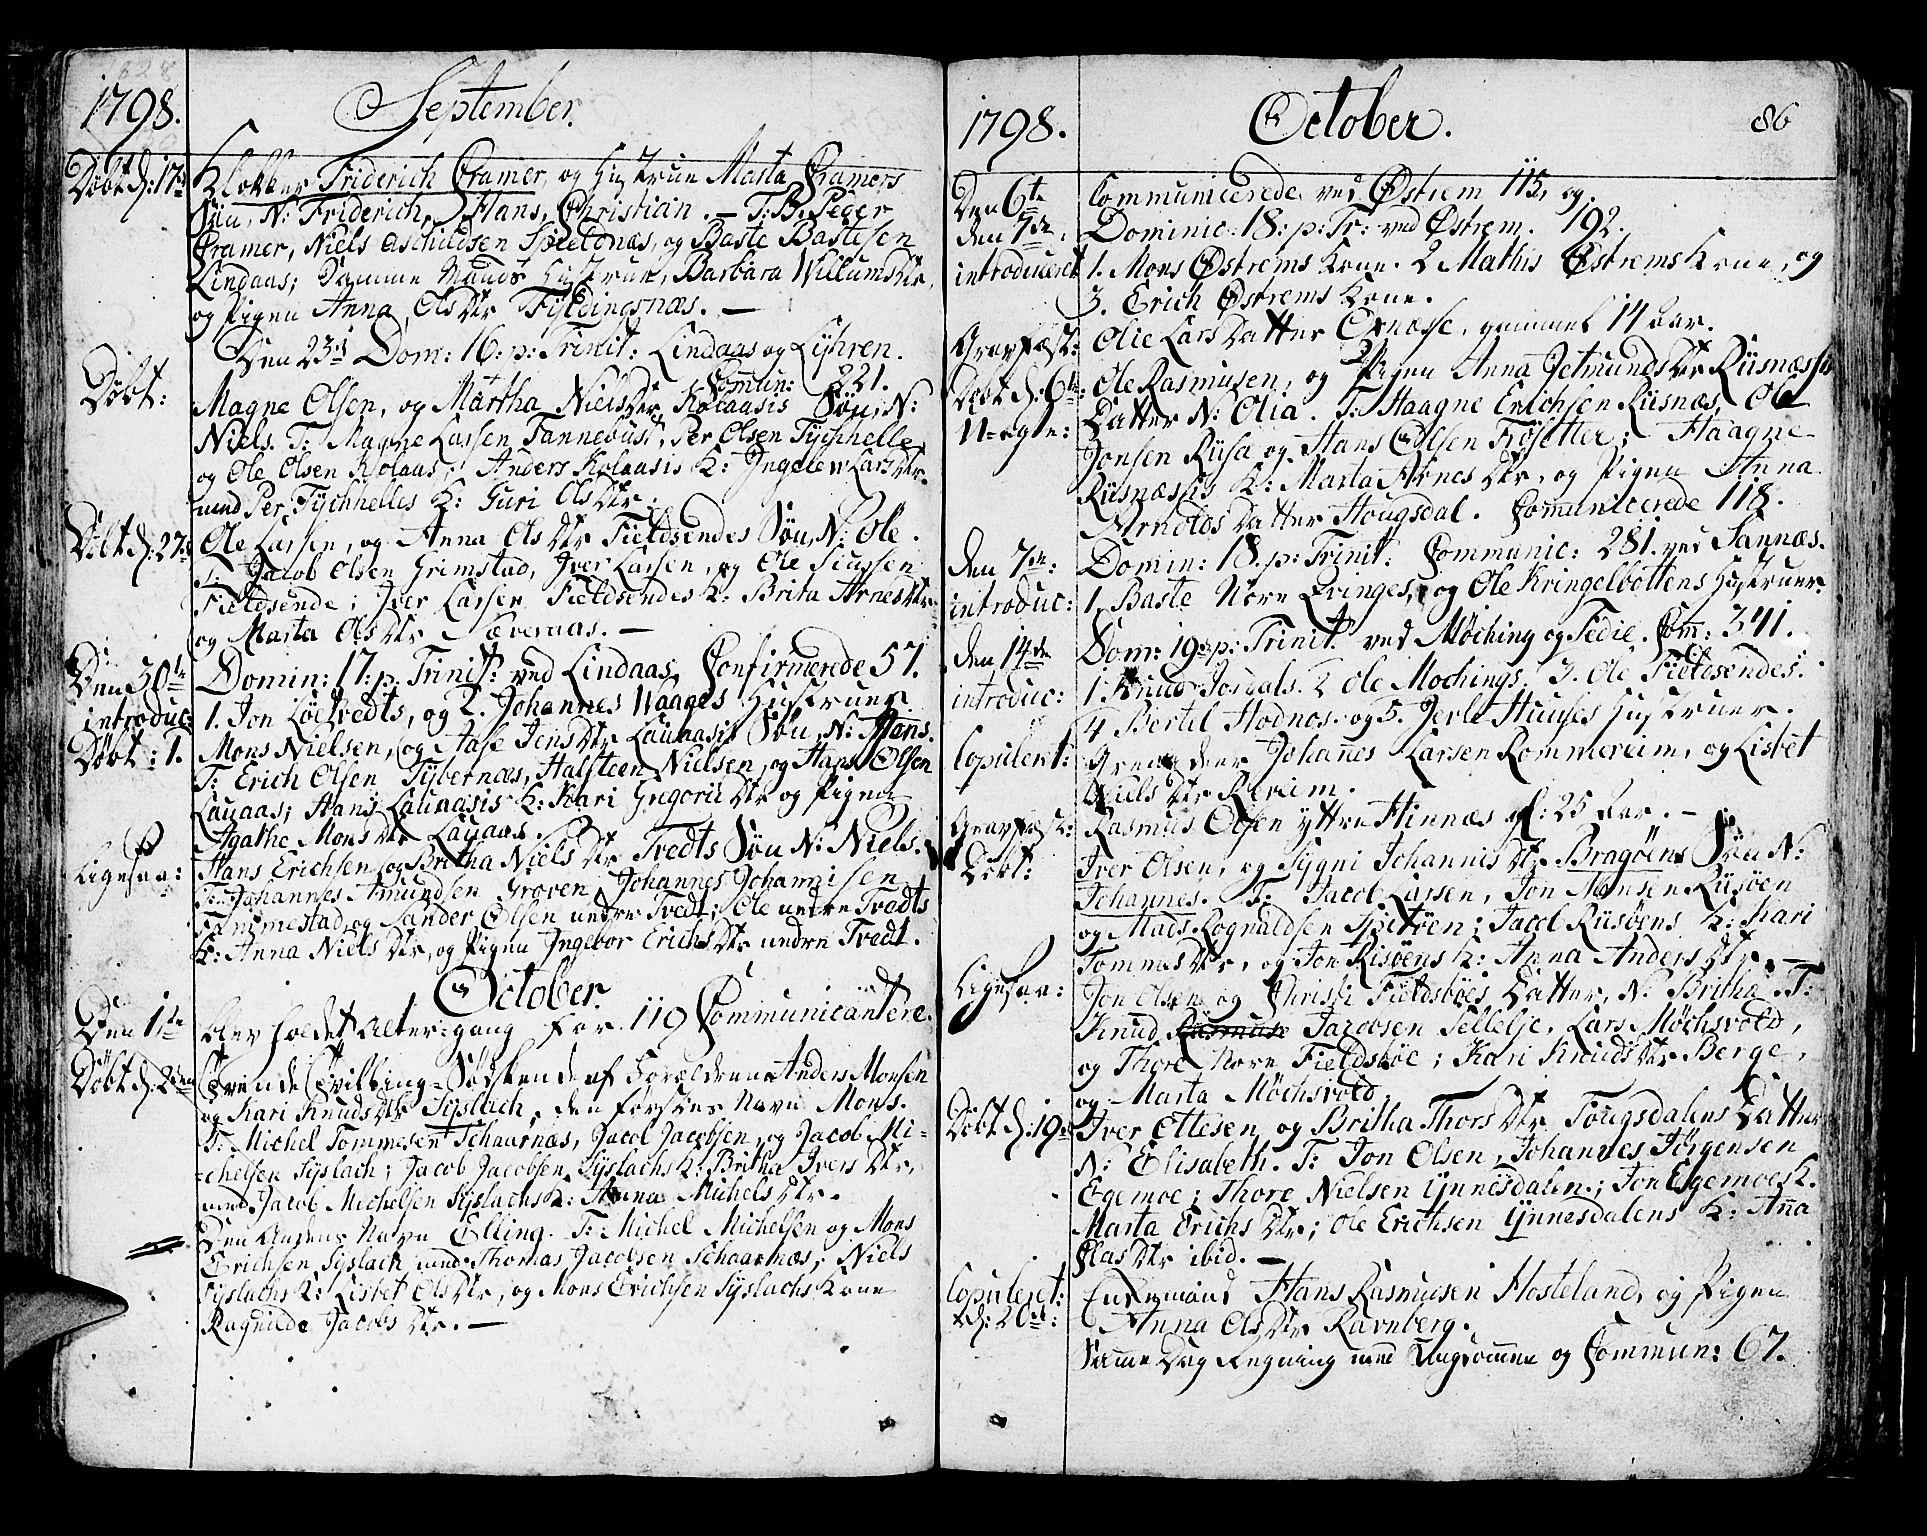 1828
1798. September.
Döbt d: 17de Klokker Friderich Cramer, og Hustrue Marta Cramers
Søn, N: Friderich, Hans, Christian. — T: B. Peder
Cramer, Niels Aschildsen Spieldnæs, og Baste Bastesen
Lindaas; Samme Mands Hustrue, Barbara Willumsdtr,
og Pigen Anna Olsdtr Fyldingsnæs. —
Den 23de Dom: 16: p: Trinit: Lindaas og Lyhren.
Comun: 221.
Döbt: Magne Olsen, og Martha Nielsdtr Kolaasis Søn, N:
Niels. T: Magne Larsen Fannebust, Per Olsen Tyschhelle,
og Ole Olsen Kolaas; Anders Kolaasis K: Ingelew Larsdtr
med Per Tychhelles K: Guri Olsdtr.
Döbt d: 27de Ole Larsen, og Anna Olsdtr Fieldsendes Søn, N: Ole.
T: Jacob Olsen Grimstad, Iver Larsen, og Ole
Fieldsende; Iver Larsen Fieldsendes K: Brita Arnesdtr
og Marta Olsdtr Næveraas. —
Den 30te Domin: 17: p: Trinit: ved Lindaas, Confirmerede 57.
introduc: 1. Jon Löetvedts, og 2. Johannes Waages Hustruer.
Döbt: 1. Mons Nielsen, og Aase Jensdtr Lauaasis Søn, N: Hans.
T: Erich Olsen Tybernæs, Halsteen Nielsen, og Hans Olsen
Lauaas; Hans Lauaasis K: Kari Gregoriidtr og Pigen
Agathe Monsdtr Lauaas.
Ligesaa: Hans Erichsen og Britha Nielsdtr Tvedts Søn N: Niels.
T: Johannes Amundsen Groven, Johannes Johannisen
Fammestad, og Sander Olsen nedre Tvedt; Ole nedre Tvedts
K: Anna Nielsdtr, og Pigen Ingebor Erichsdtr nedre Tvedt.
October.
Den 1te blev holdet Alter-gang for 119 Communicantere.
Döbt d: 2den Tvende Tvilling-Södskende af Forældrene Anders Monsen
og Kari Knudsdtr Syslach, den förstes Navn Mons.
T: Michel Tommesen Schaarnæs, Jacob Jacobsen, og Jacob Mi-
-chelsen Syslach; Jacob Jacobsen Syslachs K: Britha Iversdtr,
med Jacob Michelsen Syslachs K: Anna Michelsdtr.
Den Andens Navn Elling. T: Michel Michelsen og Mons
Erichsen Syslach, med Thomas Jacobsen Schaarnæs; Niels
Syslachs K: Lisbet Olsdtr, og Mons Erichsen Syslachs Kone
Ragnilde Jacobsdtr. —
1798. October. 86
Den 6te Communicerede ved Østrem 115, og
den 7de, Dominic: 18: p: Tr: ved Østrem. 192.
introduceret 1. Mons Østrems Kone. 2 Mathis Østrems Kone, og
3. Erich Østrems Kone.
Gravfæst: Olie Larsdatter Oxnæsse, gammel 14 Aar.
Döbt d: 6te: Ole Rasmusen, og Pigen Anna Jetmundsdtr Riisnæssis
U-ægte: Datter N: Olia. T: Haagne Erichsen Riisnæs, Ole
Jonsen Riisa og Hans Olsen Kösetter; Haagne
Riisnæssis K: Marta Arnesdtr, og Pigen Anna
Arnoldsdatter Hougsdal. Communicerede 118.
den 7de: Domin: 18. p: Trinit: Communic: 281. ved Sannæs.
introduc: 1, Baste Nore Qvinges, og Ole Kringelbottens Hustruer.
den 14de Dom: 19de p: Trinit. ved Möching og Fedie. Com: 341.
introduc: 1. Knud Jordals. 2 Ole Mochings. 3. Ole Fieldsendes.
4 Bertel Hodnos. og 5. Jerle Huuses Hustruer.
Copuleret: Johanes Larsen Rommereim, og Lisbet
Nielsdtr Rereim.
Gravfæst: Rasmus Olsen yttre Hinnæs gl: 25 Aar. —
Döbt: Iver Olsen, og Sygni Johannisdtr Bragöens Søn N:
Johannes. T: Jacob Larsen, Jon Monsen Riisöen
og Mads Rognaldsen Spitöen; Jacob Riisöens K: Kari
Tommesdtr, og Jon Risöens K: Anna Andersdtr. —
Ligesaa: Jon Olsen og Christi Fieldsböes Datter, N: Britha. T:
Knud Rasmuse Jacobsen Sellelje, Lars Möchsvold,
og Thore Nore Fieldsböe; Kari Knudsdtr Berge,
og Marta Möchsvold.
Döbt d: 19de Iver Ottesen, og Britha Thorsdtr Tougsdalens Datter
N: Elisabeth. T: Jon Olsen, Johannes Jørgensen
Egemoe; Thore Nielsen Ynnesdalen; Jon Egemoes K.
Marta Erichsdtr; Ole Erichsen Ynnesdalens K: Anna
Olasdtr ibid. —
Copuleret: Enkemand Hans Rasmusen Hosteland, og Pigen
d: 20de: Anna Olsdtr Ravnberg.
Same Dag Regning med Ungdommen og Commun: 67.